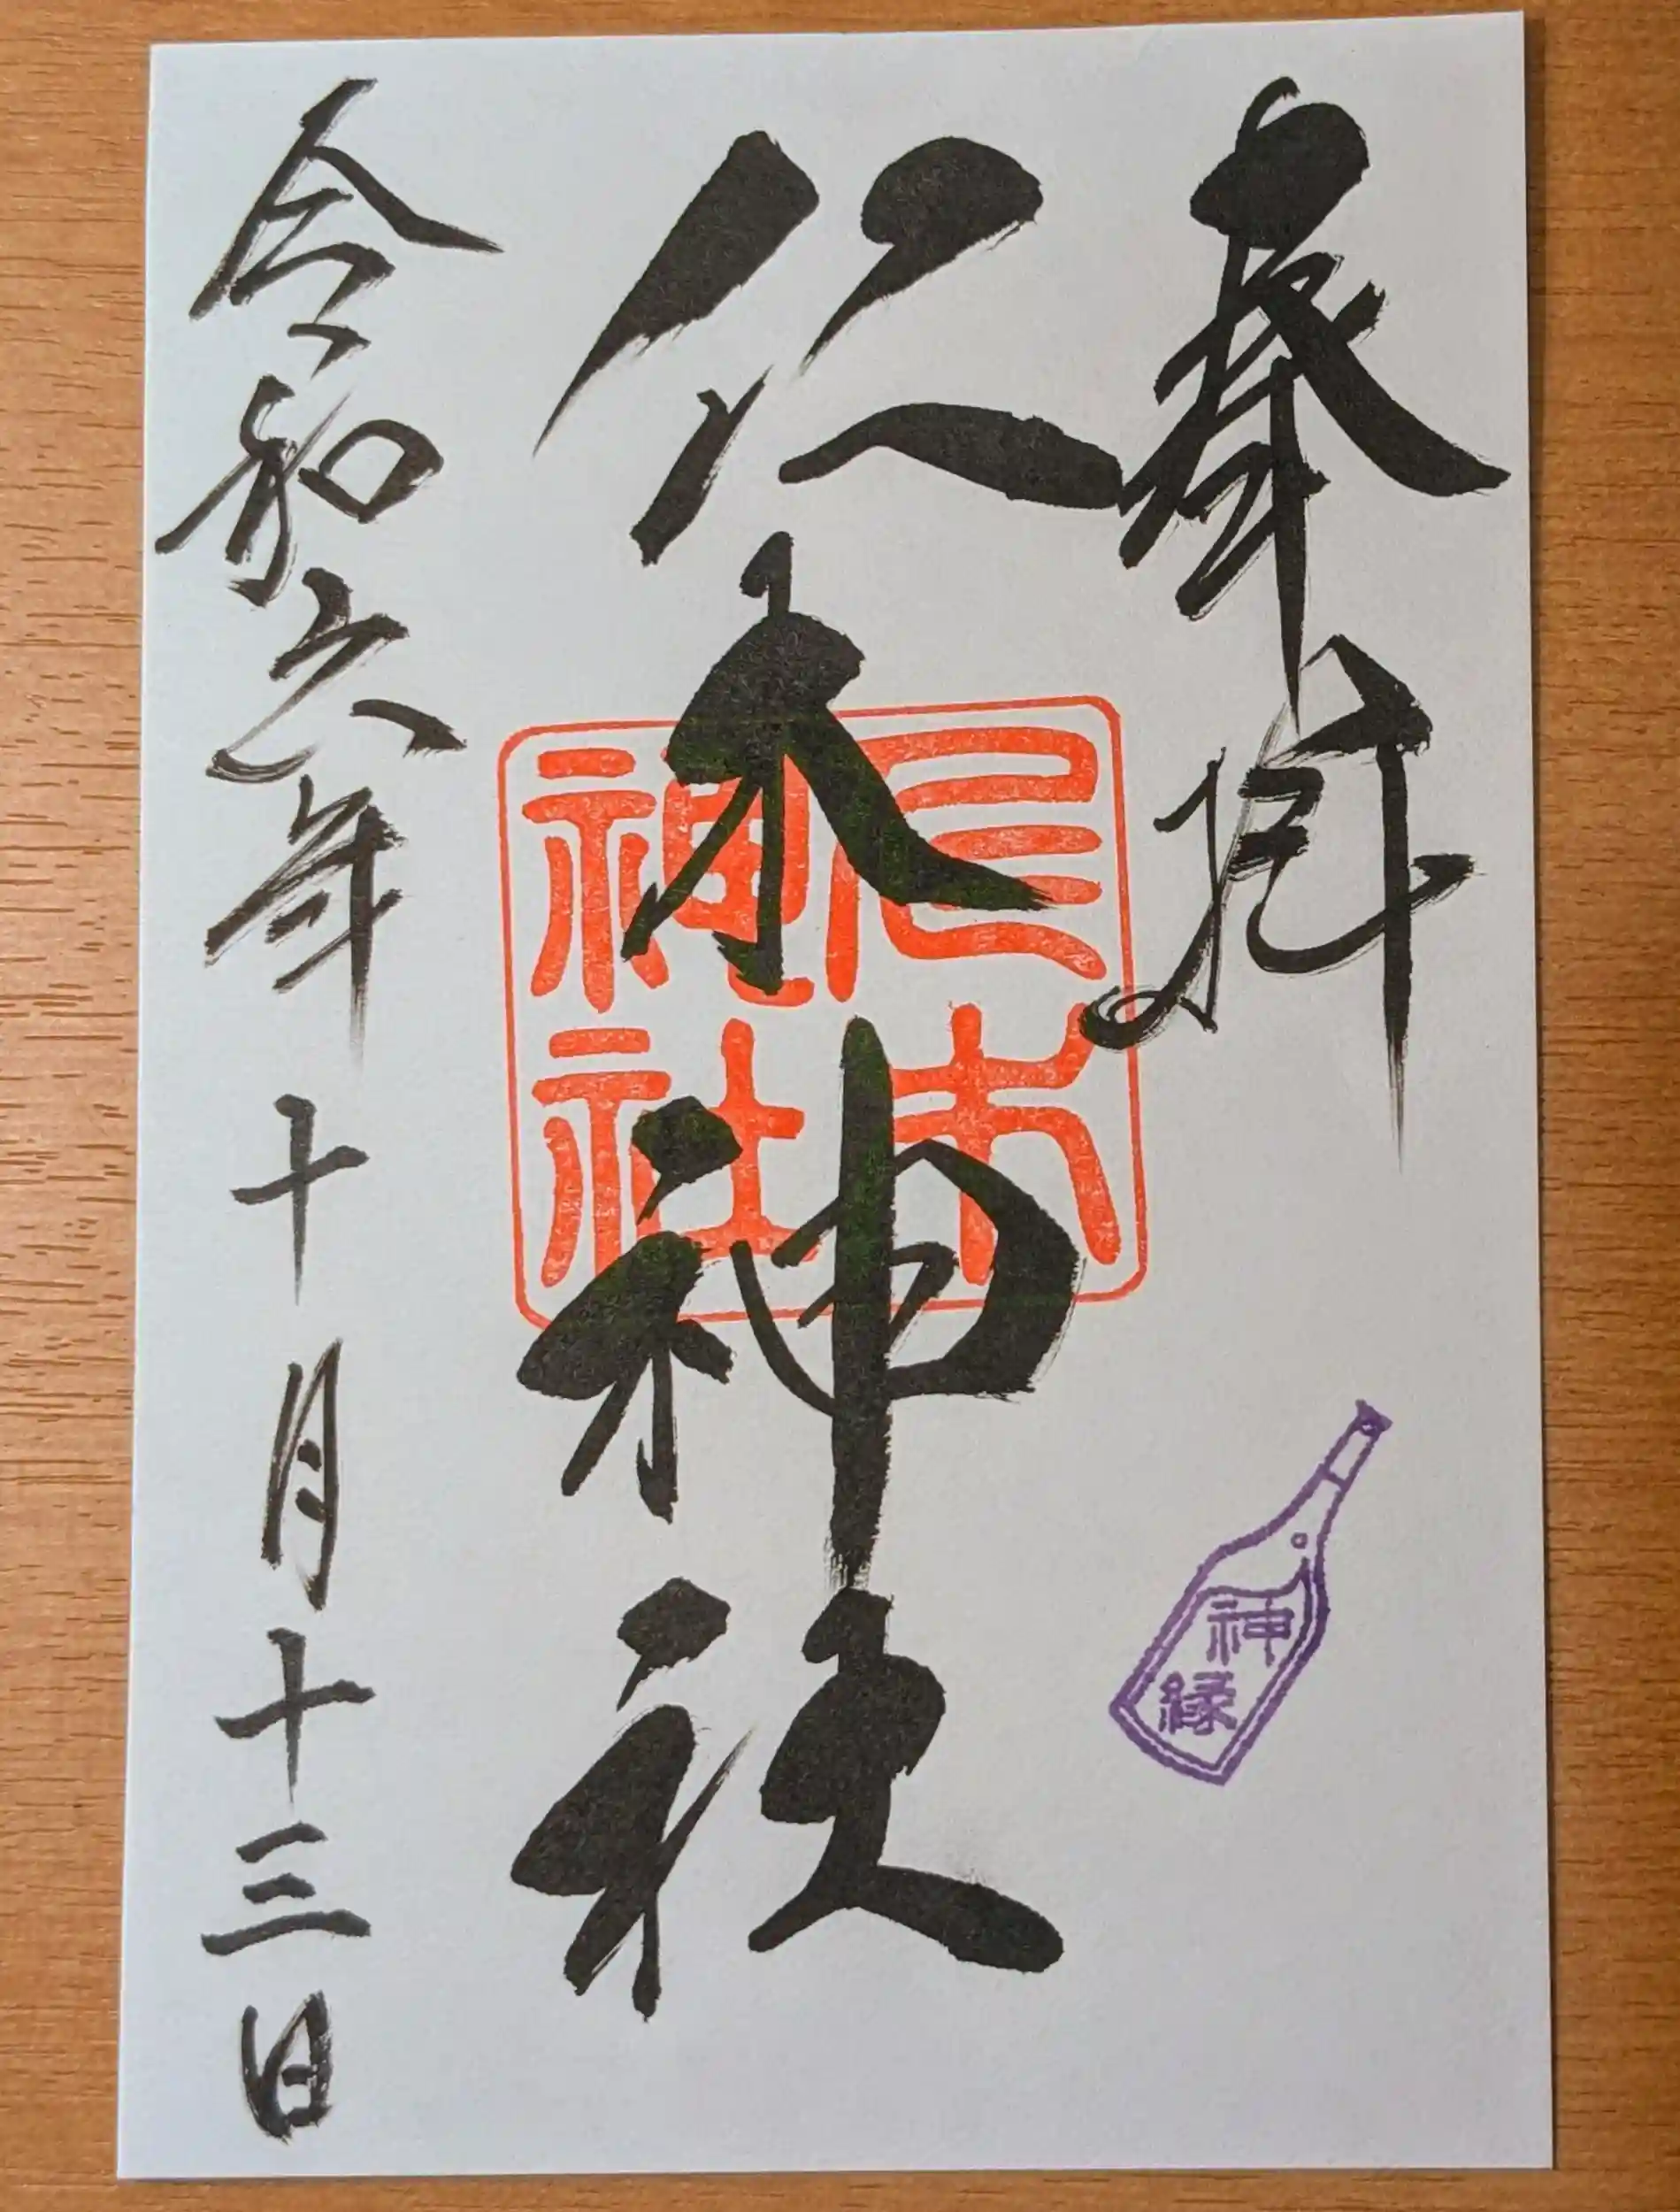 奉拝
仁木神社
令和六年十月十三日
仁木
神社
神
縁